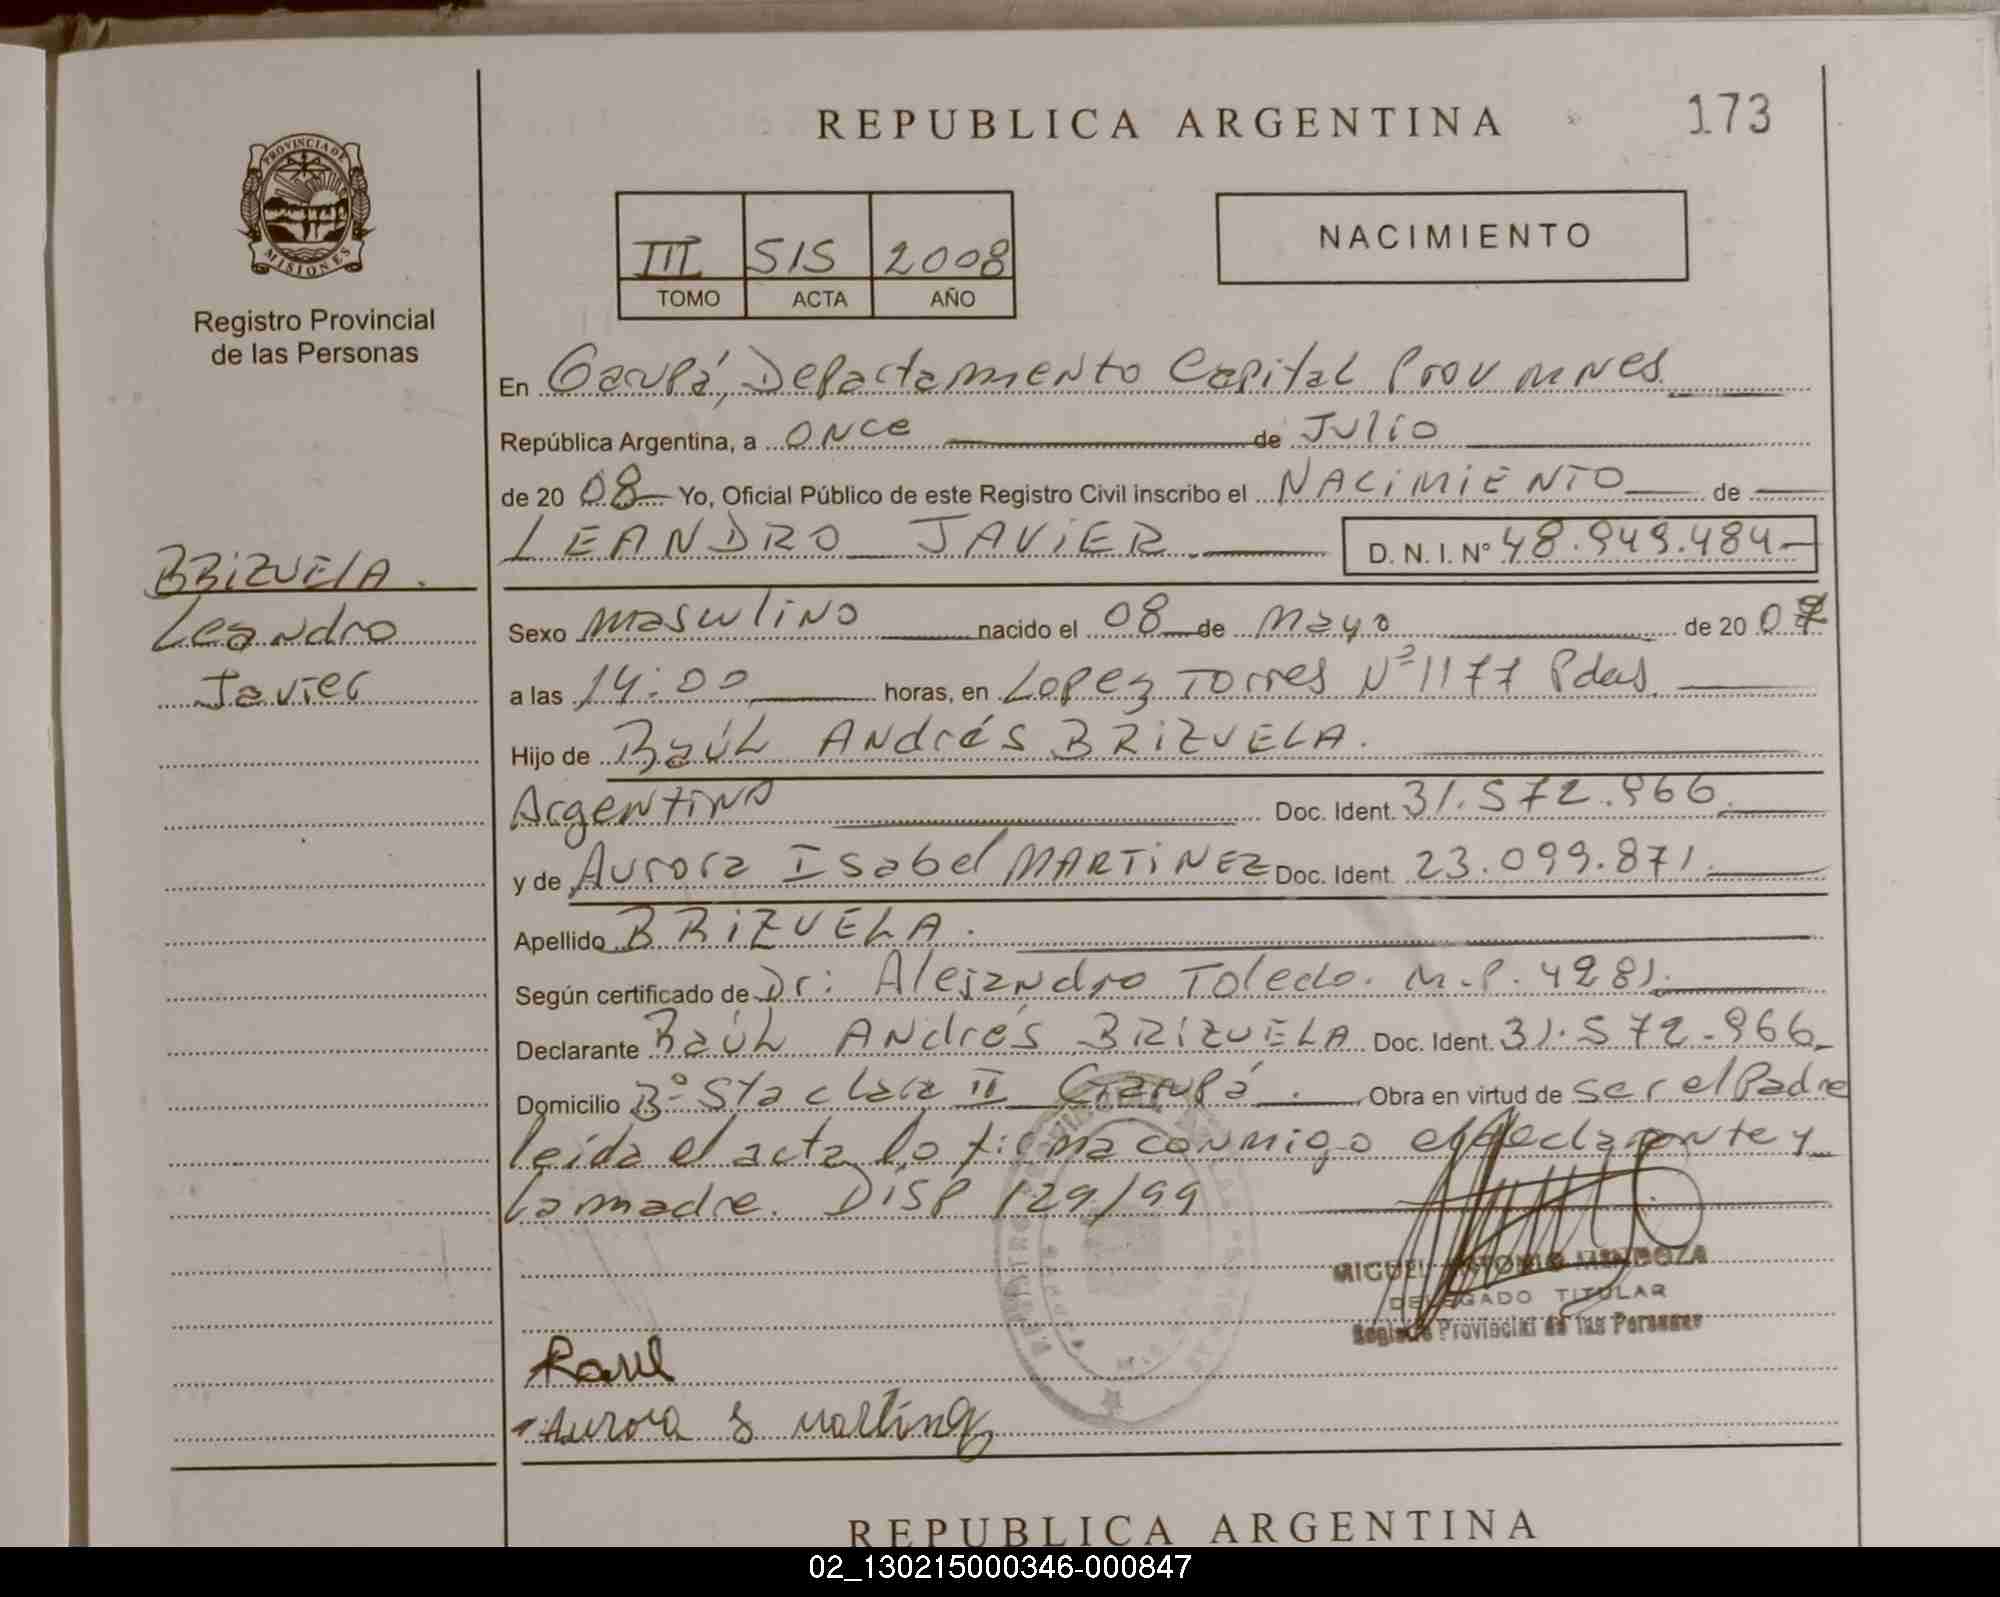 REPUBLICA ARGENTINA
173
PROVINCIA DE
MISIONES
Registro Provincial
de las Personas
III 515 2008
TOMO ACTA AÑO
NACIMIENTO
En Garupá, Departamento Capital Prov Mnes
República Argentina, a once de Julio
de 20 08 Yo, Oficial Público de este Registro Civil inscribo el NACIMIENTO de
LEANDRO JAVIER. D. N. I. Nº 48.949.484
BRIZUELA.
Leandro
Javier
Sexo masculino nacido el 08 de Mayo de 20 0
a las 14:00 horas, en Lopez Torres Nº 1177 Pdas
Hijo de Raúl Andrés BRIZUELA.
Argentina Doc. Ident. 31.572.966
y de Aurora Isabel MARTINEZ Doc. Ident. 23.099.871
Apellido BRIZUELA.
Según certificado de Dr: Alejandro Toledo. M.P. 4281
Declarante Raúl Andrés BRIZUELA Doc. Ident. 31.572.966
Domicilio Bº Sta Clara II Garupá. Obra en virtud de ser el Padre
leída el acta lo firma conmigo el declarante y
la madre. DISP 129/99
MIGUEL ANTONIO MENDOZA
DELEGADO TITULAR
Registro Provincial de las Personas
Raul
Aurora I Martinez
REPUBLICA ARGENTINA
02_130215000346-000847